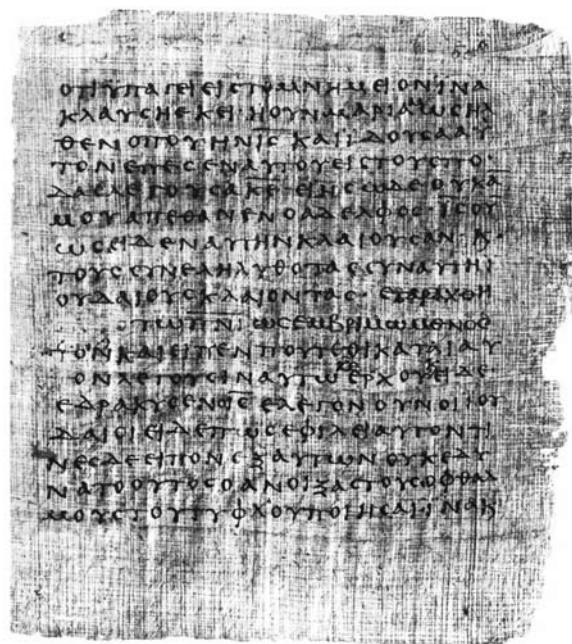 ΟΤΙΥΠΑΓΕΙΕΙϹΤΟΜΝΗΜΕΙΟΝΙΝΑ
ΚΛΑΥϹΗΕΚΕΙ·ΗΟΥΝΜΑΡΙΑΜωϹΗΛ
ΘΕΝΟΠΟΥΗΝΙ̅Ϲ̅ΚΑΙΪΔΟΥϹΑΑΥ
ΤΟΝΕΠΕϹΕΝΑΥΤΟΥΕΙϹΤΟΥϹΠΟ·
ΔΑϹΛΕΓΟΥϹΑΚ̅Ε̅·ΕΙΗϹωΔΕΟΥΚΑ
ΜΟΥΑΠΕΘΑΝΕΝΟΑΔΕΛΦΟϹ·Ι̅Ϲ̅ΟΥ
ωϹΕΙΔΕΝΑΥΤΗΝΚΛΑΙΟΥϹΑΝ·Κ·
ΤΟΥϹϹΥΝΕΛΗΛΥΘΟΤΑϹϹΥΝΑΥΤΗΙ
ΟΥΔΑΙΟΥϹΚΛΑΙΟΝΤΑϹ·ΕΤΑΡΑΧΘΗ
ΤωΠ̅Ν̅Ι̅ωϹΕΜΒΡΙΜωΜΕΝΟϹ
ΟΝΚΑΙΕΙΠΕΝΠΟΥΤΕΘΙΚΑΤΑΙΑΥ
ΟΝΛΕΓΟΥϹΙΝΑΥΤωΚ̅Ε̅ΕΡΧΟΥΙΔΕ·
ΕΔΡΑΚΥϹΕΝΟΙ̅Ϲ̅ΕΛΕΓΟΝΟΥΝΟΙΙΟΥ
ΔΑΙΟΙΕΙΔΕΠωϹΕΦΙΛΕΙΑΥΤΟΝΤΙ
ΝΕϹΔΕΕΙΠΟΝΕΞΑΥΤωΝΟΥΚΕΔΥ
ΝΑΤΟΟΥΤΟϹΟΑΝΟΙΞΑϹΤΟΥϹΟΦΘΑΛ
ΜΟΥϹΤΟΥΤΥΦΛΟΥΠΟΙΗϹΑΙΙΝΑΚ